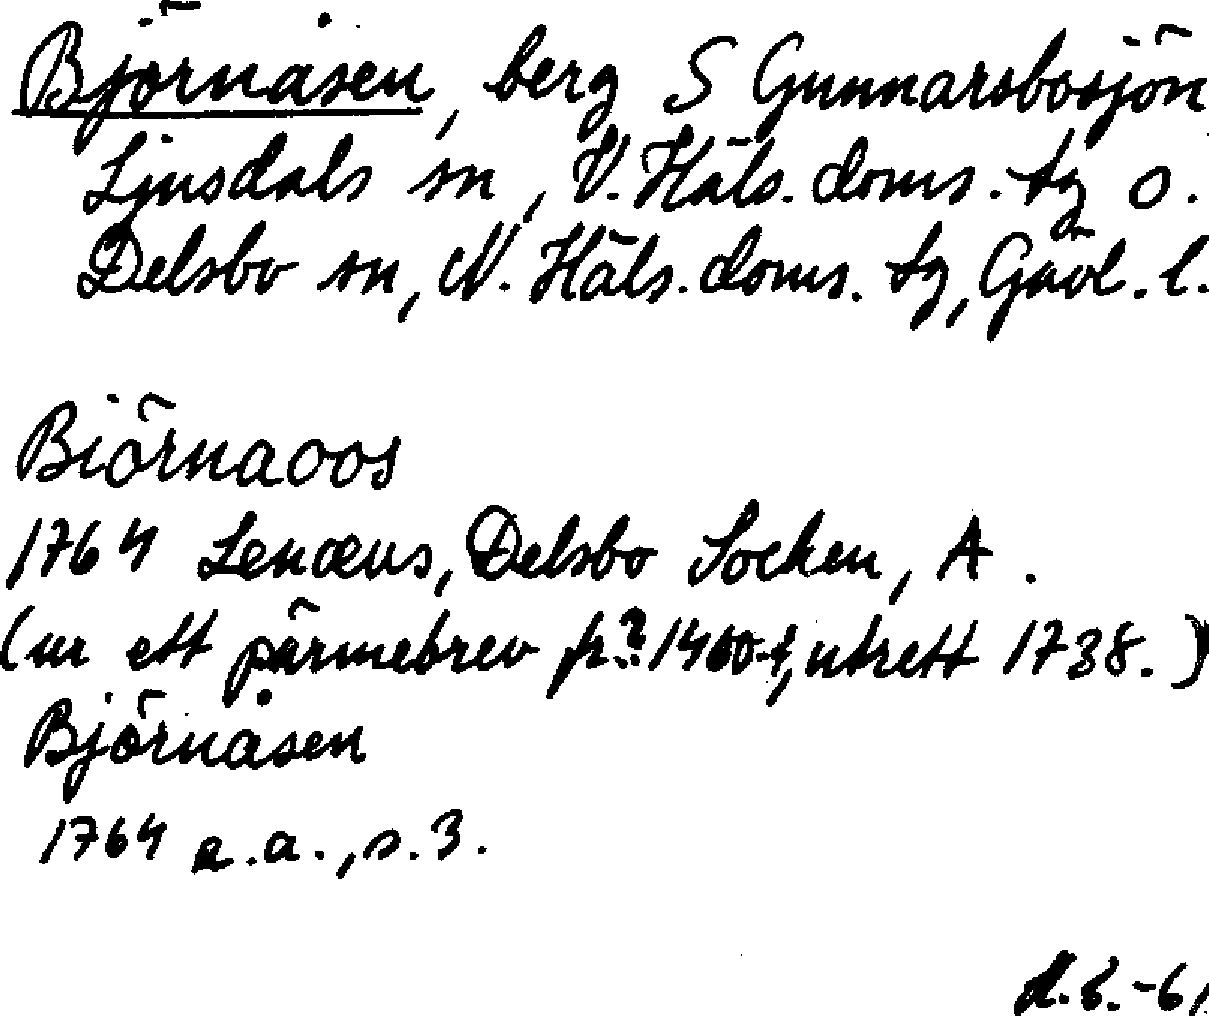 Björnåsen, berg S Gunnarsbosjön
Ljusdals sn, V. Häls. doms. tg o.
Delsbo sn, N. Häls. doms. tg, Gävl. l.
Biörnaoos
1764 Lenæus, Delsbo Socken, A.
(ur ett pärmebrev fr. utrett 1738.)
Björnåsen
1764 a.a., s. 3.